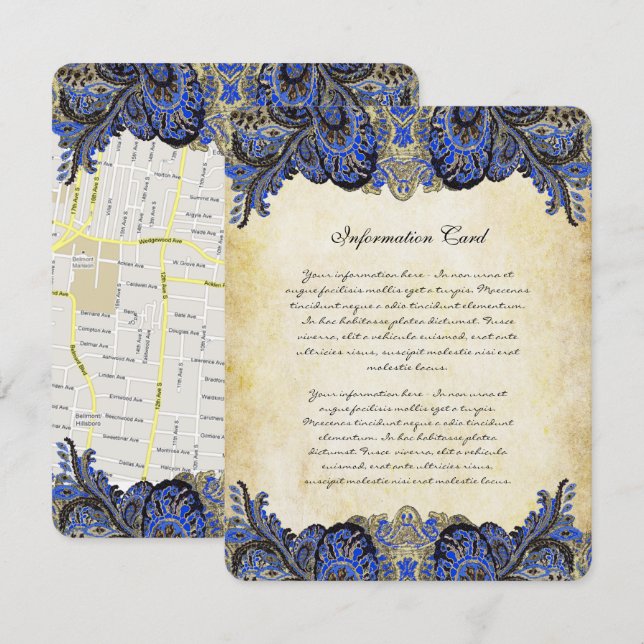 15th Ave S
16th Ave S
17th Ave S
Villa Pl
Horton Ave
Summe Ave
Villa Pl
Argyle Ave
Wade Ave
Wedgewood Ave
Belmont
Mansion
W. Grove Ave
12th Ave S
Acklen Ave
Caldwell Ave
Bernard Ave
Bern
Compton Ave
Douglas Ave
Delmar Ave
Ashwood Ave
Elmwood Ave
Lawrence Ave
Belmont Blvd
Linden Ave
11th Ave S
Paris Ave
Beechwood Ave
12th Ave S
Belmont/
Hillsboro
Sweetbriar Ave
Montrose Ave
Dallas Ave
Halcyon Ave
Information Card
Your information here - In non urna et
augue facilisis mollis eget a turpis. Maecenas
tincidunt neque a odio tincidunt elementum.
In hac habitasse platea dictumst. Fusce
viverra, elit a vehicula euismod, erat ante
ultricies risus, suscipit molestie nisi erat
molestie lacus.
Your information here - In non urna et
augue facilisis mollis eget a turpis.
Maecenas tincidunt neque a odio tincidunt
elementum. In hac habitasse platea
dictumst. Fusce viverra, elit a vehicula
euismod, erat ante ultricies risus,
suscipit molestie nisi erat molestie lacus.